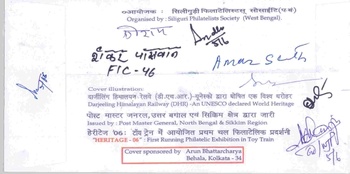 ०आयोजक : सिलीगुड़ी फिलाटेलिस्टस् सोसाईटि (प॰ब॰)
Organised by : Siliguri Philatelists Society (West Bengal).
शंकर पासवान
FIC-46
Cover illustration:
दार्जीलिंग हिमालयन रेलवे (डी.एच.आर)-युनेस्को द्वारा घोषित एक विश्व धरोहर
Darjeeting Himalayan Railway (DHR) - An UNESCO declared World Heritage
पोष्ट मास्टर जनरल, उत्तर बंगाल एवं सिक्किम क्षेत्र द्वारा जारी
Issued by : Post Master General, North Bengal & Sikkim Region
हेरीटेज ०७ : टॉय ट्रेन में आयोजित प्रथम चल फिलाटेलिक प्रदर्शनी
"HERITAGE - 06" : First Running Philatelic Exhibition in Toy Train
Cover sponsored by Arun Bhattarcharya
Behala, Kolkata - 34